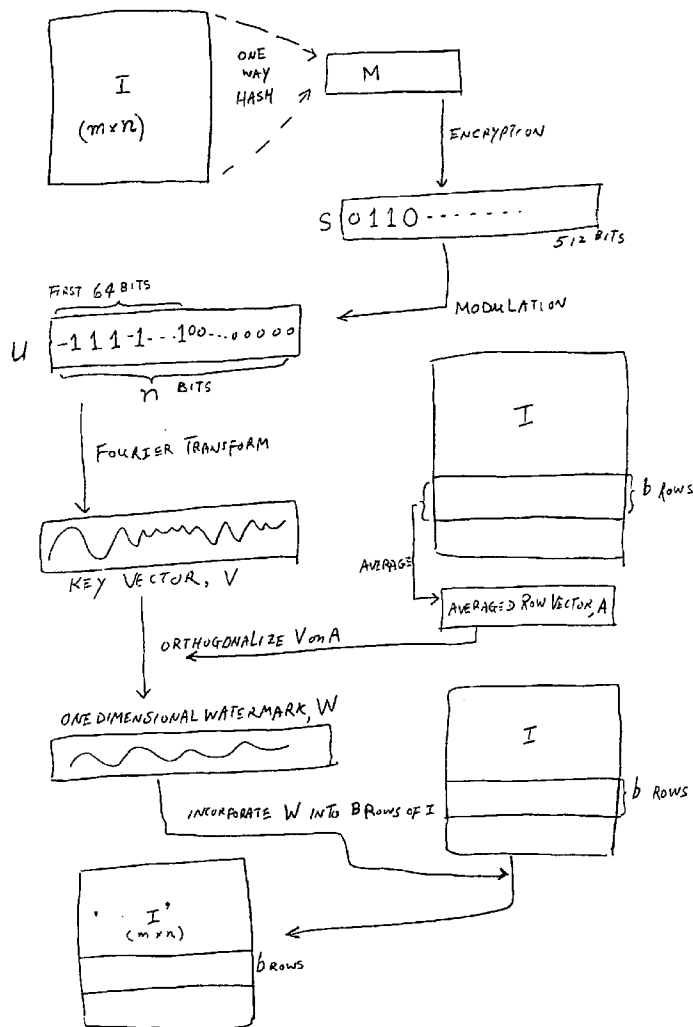 I
(m×n)
ONE
WAY
HASH
M
ENCRYPTION
S 0110-------
512 BITS
MODULATION
FIRST 64 BITS
U -1 1 1 -1 - - - 100...00000
n BITS
FOURIER TRANSFORM
I
b ROWS
AVERAGE
KEY VECTOR, V
AVERAGED ROW VECTOR, A
ORTHOGONALIZE V on A
ONE DIMENSIONAL WATERMARK, W
I
b ROWS
INCORPORATE W INTO B ROWS OF I
I'
(m×n)
b ROWS